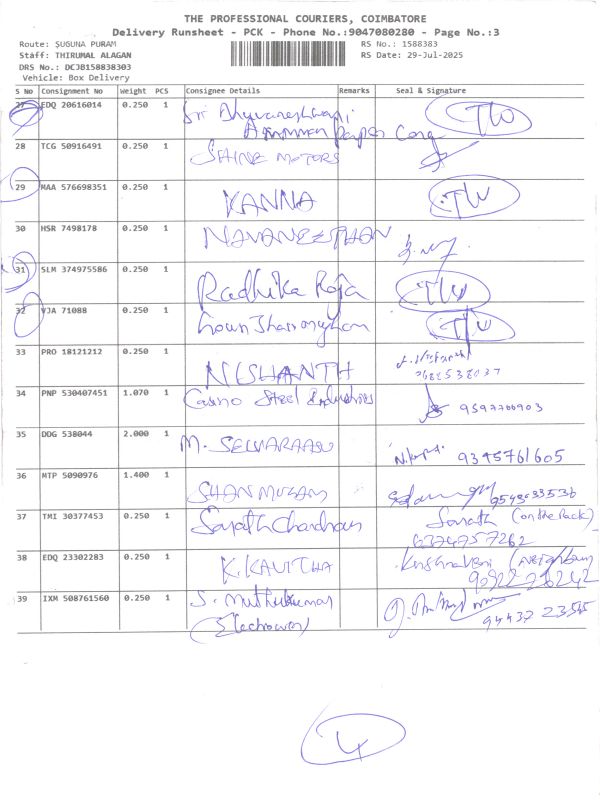 THE PROFESSIONAL COURIERS, COIMBATORE
Delivery Runsheet - PCK - Phone No.:9047080280 - Page No.:3
Route: SUGUNA PURAM RS No.: 1588383
Staff: THIRUMAL ALAGAN RS Date: 29-Jul-2025
DRS No.: DCJB158838303
Vehicle: Box Delivery
S No Consignment No Weight PCS Consignee Details Remarks Seal & Signature
27 EDQ 20616014 0.250 1 Sri TW
28 TCG 50916491 0.250 1 SHINE MOTORS
29 MAA 576698351 0.250 1 KANNA TW
30 HSR 7498178 0.250 1 NAVANEETHAN
31 SLM 374975586 0.250 1 Radhika Raja TW
32 VJA 71088 0.250 1 TW
33 PRO 18121212 0.250 1 NISHANTH
34 PNP 530407451 1.070 1 Casino Steel Industries 9597700903
35 DDG 538044 2.000 1 M. SELVARAASU 9345761605
36 MTP 5090976 1.400 1 SHANMUGAM
37 TMI 30377453 0.250 1 Sampath Chandran
6374757262
38 EDQ 23302283 0.250 1 K. KAVITHA
39 IXM 508761560 0.250 1 S. Muthukumar
4